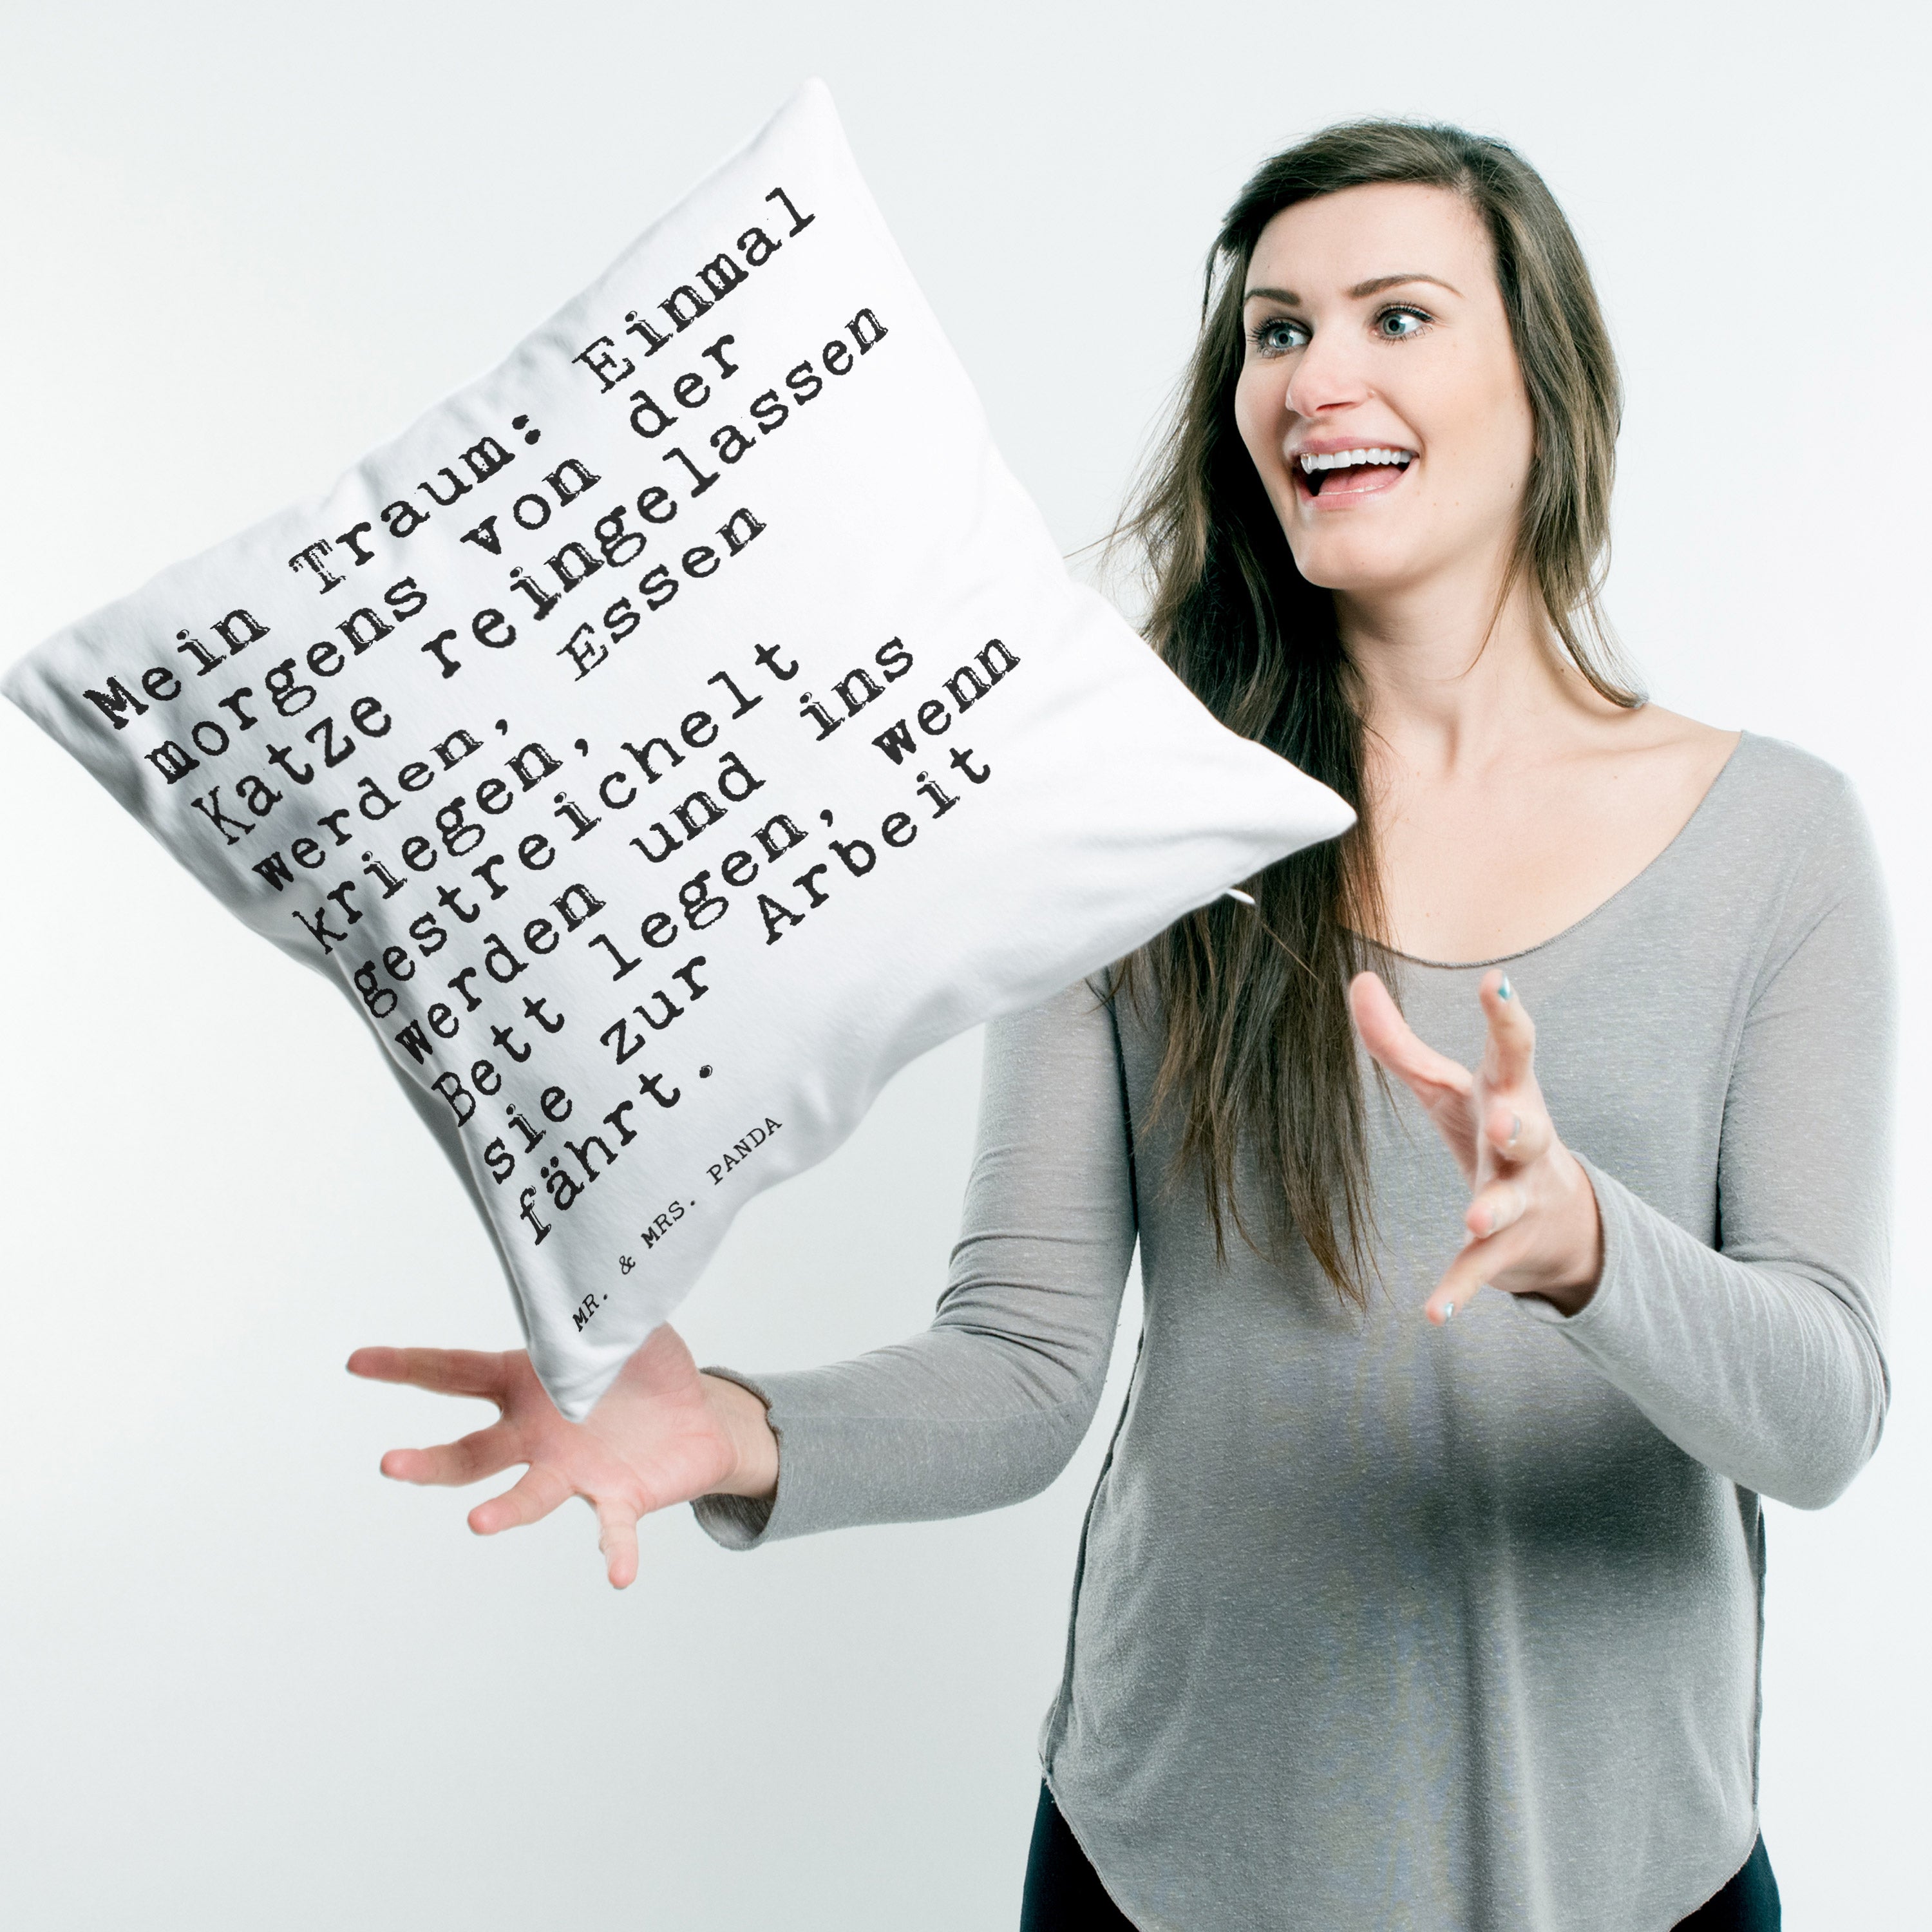 Mein Traum: Einmal
morgens von der
Katze reingelassen
werden, Essen
kriegen,
gestreichelt
werden und ins
Bett legen, wenn
sie zur Arbeit
fährt.
MR. & MRS. PANDA